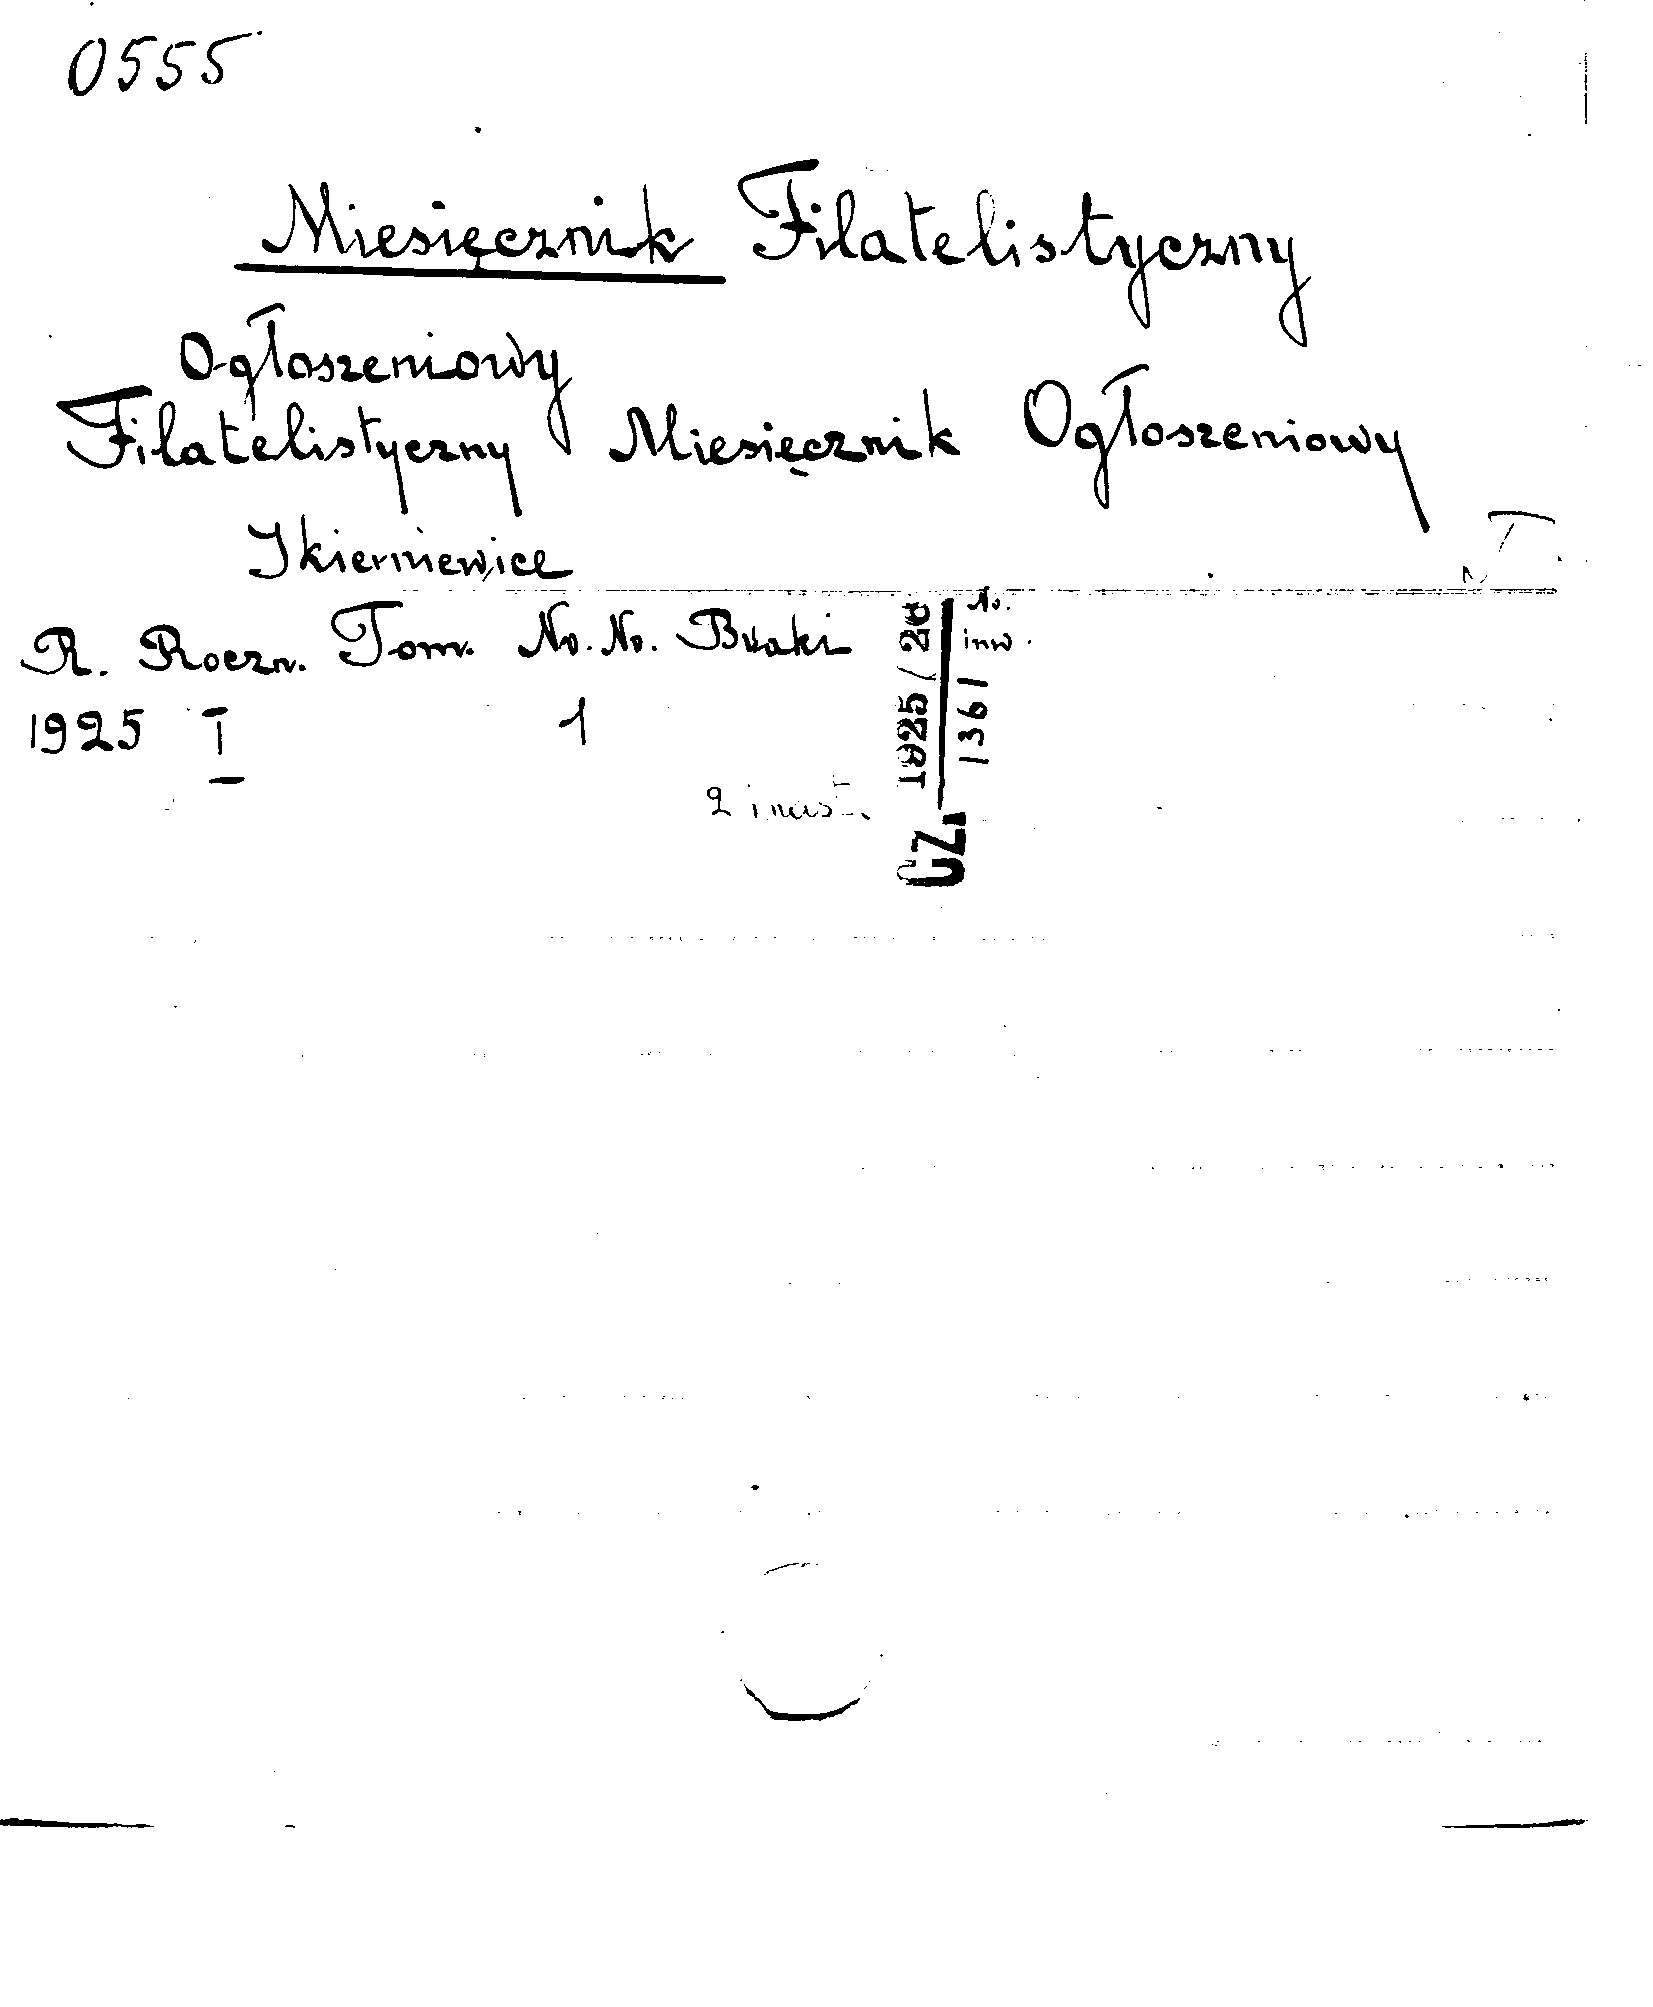 0555
Miesięcznik Filatelistyczny
Ogłoszeniowy
Filatelistyczny Miesięcznik Ogłoszeniowy
Skierniewice
R. Roczn. Tom. No. No. Braki
No. inw.
1925 I 1
1361
2 i nast.
CZ. 1925/26